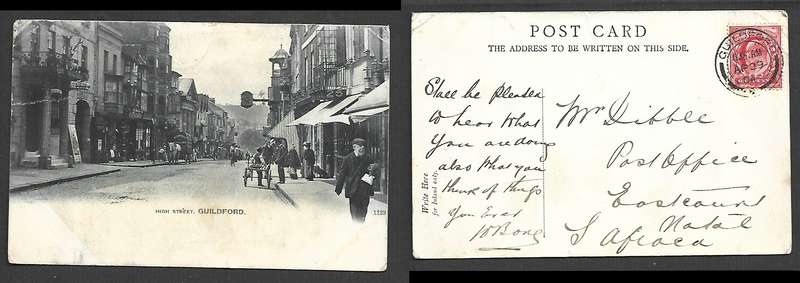 HIGH STREET, GUILDFORD.
1129
POST CARD
THE ADDRESS TO BE WRITTEN ON THIS SIDE.
GUILDFORD
AP 29
Shall be pleased
to hear what
you are doing
also what you
think of things
Yours Ever
Write Here
for Inland only.
Mr Dibble
Post Office
Estcourt
Natal
S Africa